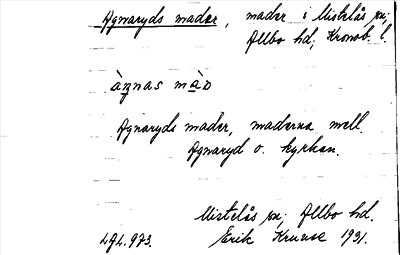 Agnaryds mader, mader i Mistelås sn;
Allbo hd, Kronob. l.
àŋnas màd
Agnaryds mader, maderna mell.
Agnaryd o. kyrkan.
Mistelås sn; Allbo hd.
Erik Kruuse 1931.